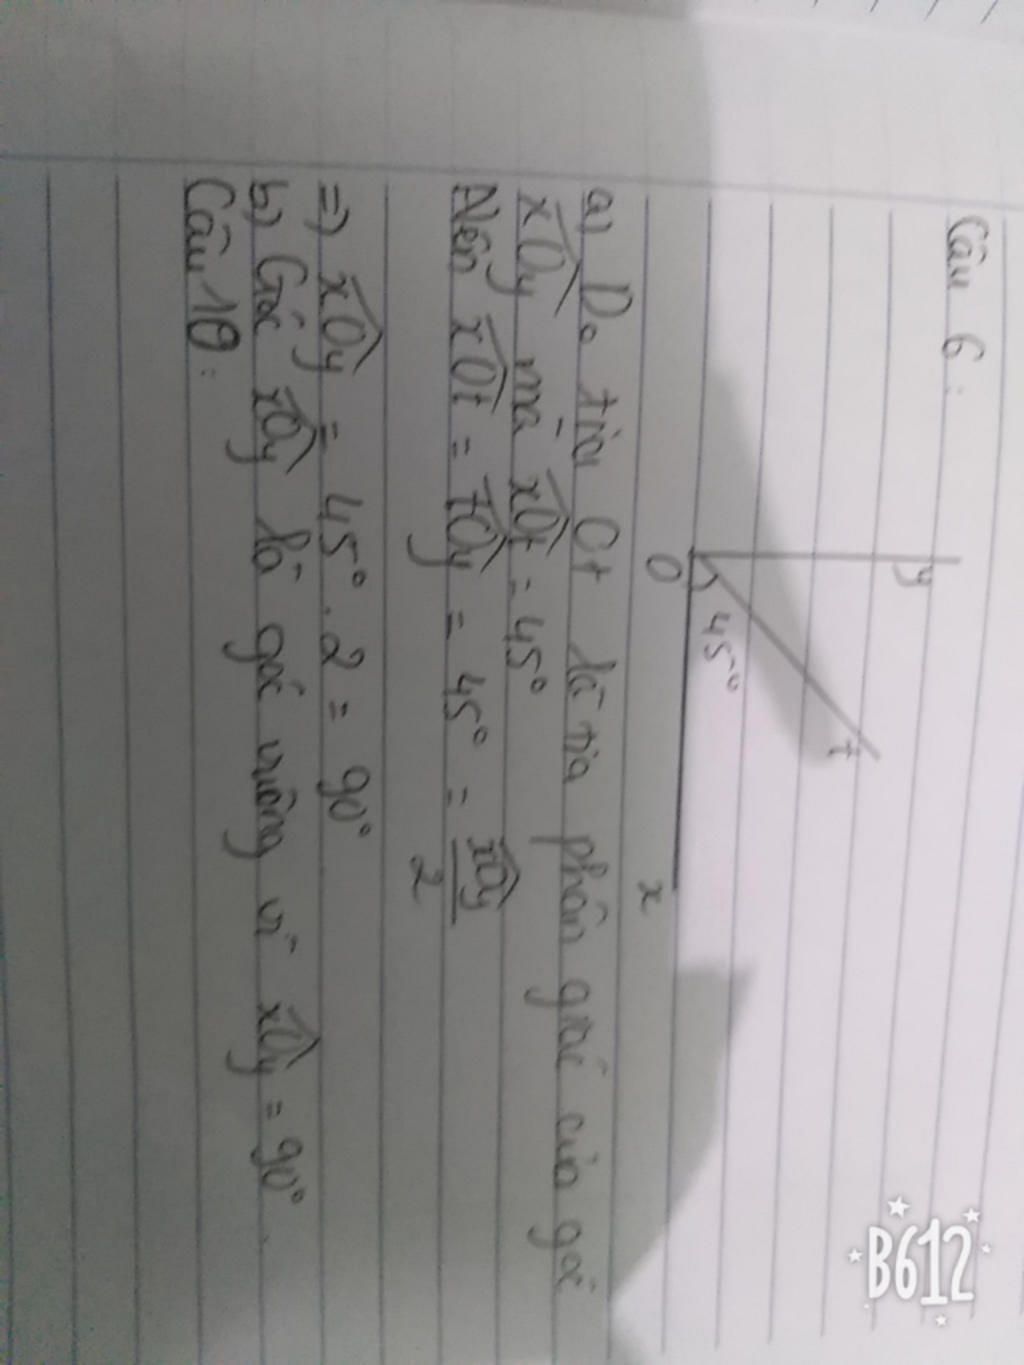 Câu 6:
y
t
45°
O
x
a) Do tia Ot là tia phân giác của góc
xOy mà xOt = 45°
Nên xOt = tOy = 45° = xOy
2
=> xOy = 45° . 2 = 90°
b) Góc xOy là góc vuông vì xOy = 90°.
Câu 10:
B612